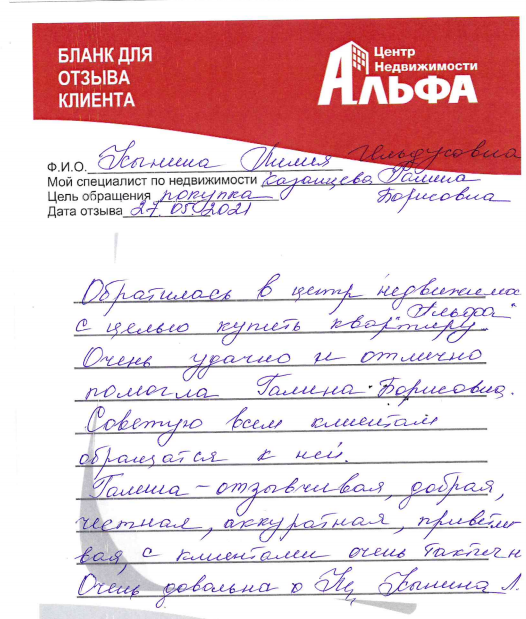 БЛАНК ДЛЯ
ОТЗЫВА
КЛИЕНТА
Центр
Недвижимости
АЛЬФА
Ф.И.О. Кынина Лилия Ильдусовна
Мой специалист по недвижимости Казанцева Галина
Цель обращения покупка Борисовна
Дата отзыва 27.05.2021
Обратилась в центр недвижимос
"Альфа"
с целью купить квартиру.
Очень удачно и отлично
помогла Галина Борисовна.
Советую всем клиентам
обращатся к ней.
Галина - отзывчивая, добрая,
честная, аккуратная, приветли
вая, с клиентами очень тактичн
Очень довольна Кынина Л.